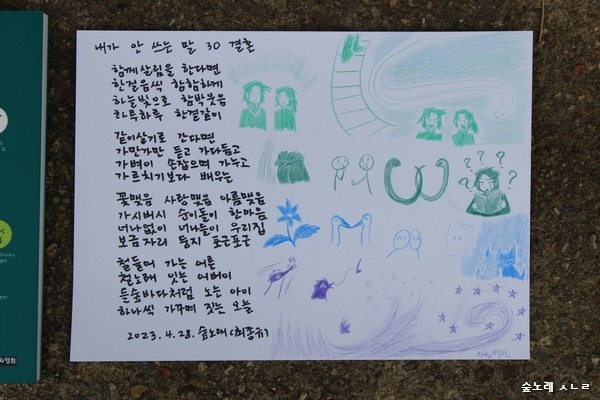 내가 안 쓰는 말 30 결혼
함께살림을 한다면
한걸음씩 함함하게
하늘빛으로 함박웃음
하루하루 한결같이
같이살기로 간다면
가만가만 듣고 가다듬고
가벼이 손잡으며 가누고
가르치기보다 배우는
꽃맺음 사랑맺음 아름맺음
가시버시 순이돌이 한마음
너나없이 너나들이 우리집
보금자리 둥지 포근포근
철들어 가는 어른
철노래 잇는 어버이
들숲바다처럼 노는 아이
하나씩 가꾸며 짓는 오늘
2023. 4. 28. 숲노래 (최종규)
숲노래 ㅅㄴㄹ